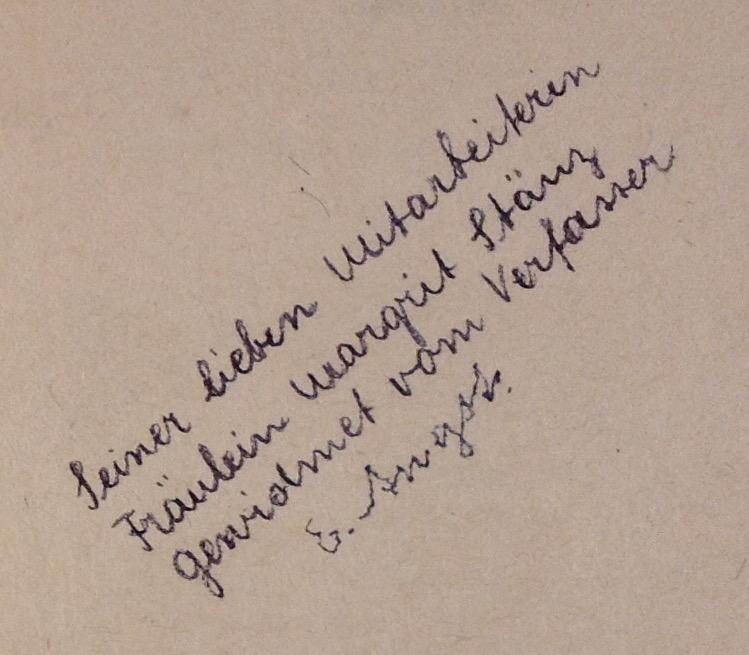 Seiner lieben Mitarbeiterin
Fräulein Margrit Stänz
gewidmet vom Verfasser
E.